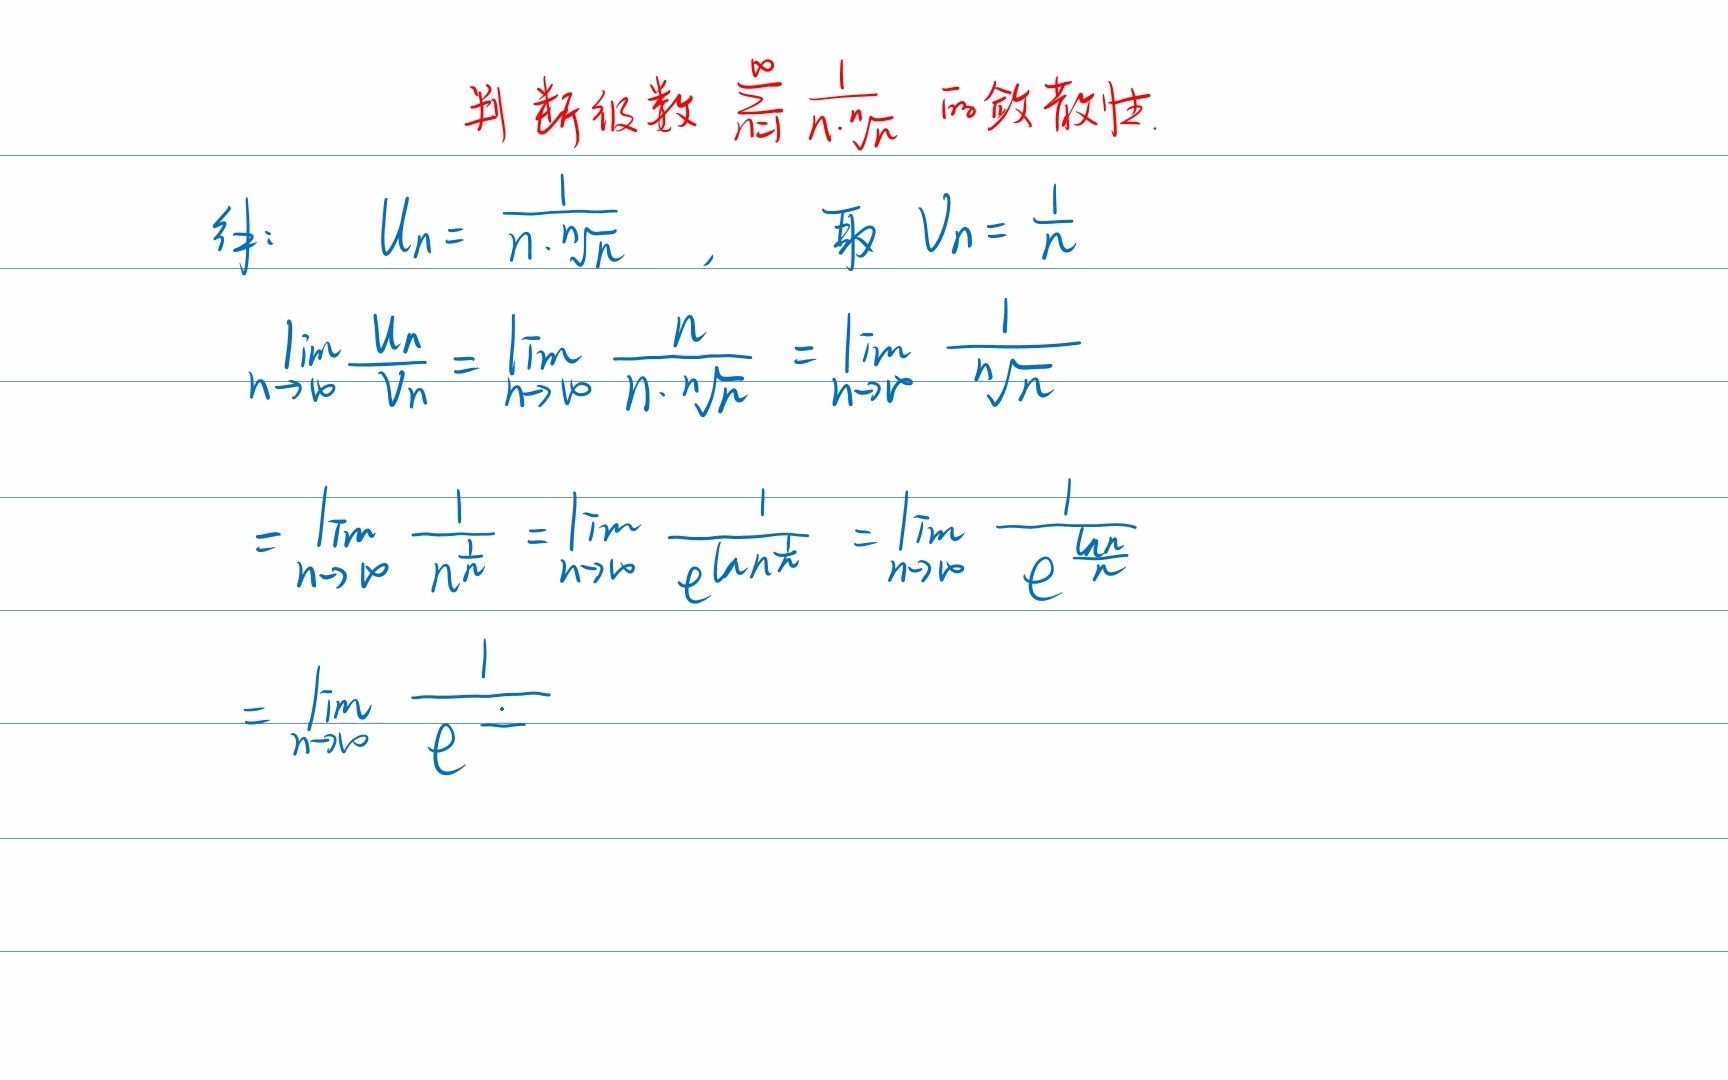 判断级数 ∑_{n=1}^{∞} 1/(n·ⁿ√n) 的敛散性.
解: Un = 1/(n·ⁿ√n) , 取 Vn = 1/n
lim_{n→∞} Un/Vn = lim_{n→∞} n/(n·ⁿ√n) = lim_{n→∞} 1/ⁿ√n
= lim_{n→∞} 1/n^{1/n} = lim_{n→∞} 1/e^{ln n^{1/n}} = lim_{n→∞} 1/e^{(ln n)/n}
= lim_{n→∞} 1/e